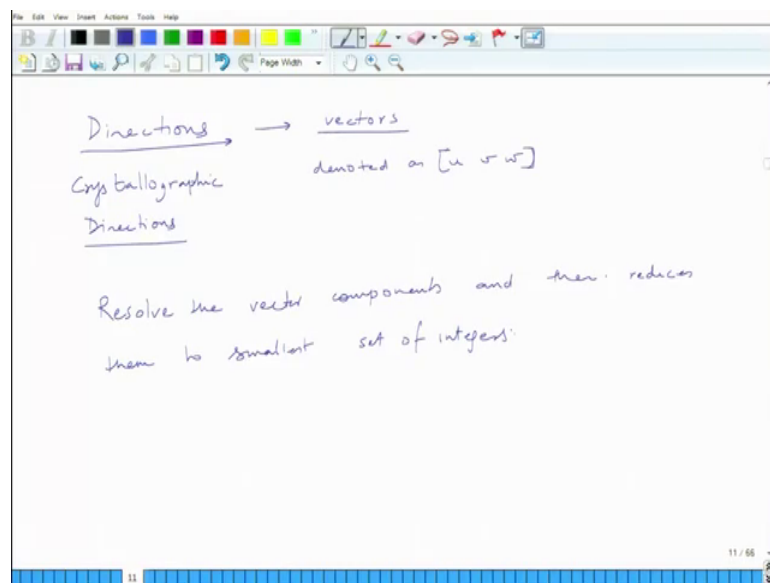 File Edit View Insert Actions Tools Help
B I
Page Width
Directions → vectors
denoted as [u v w]
Crystallographic
Directions
Resolve the vector components and then reduces
them to smallest set of integers.
11 / 66
11